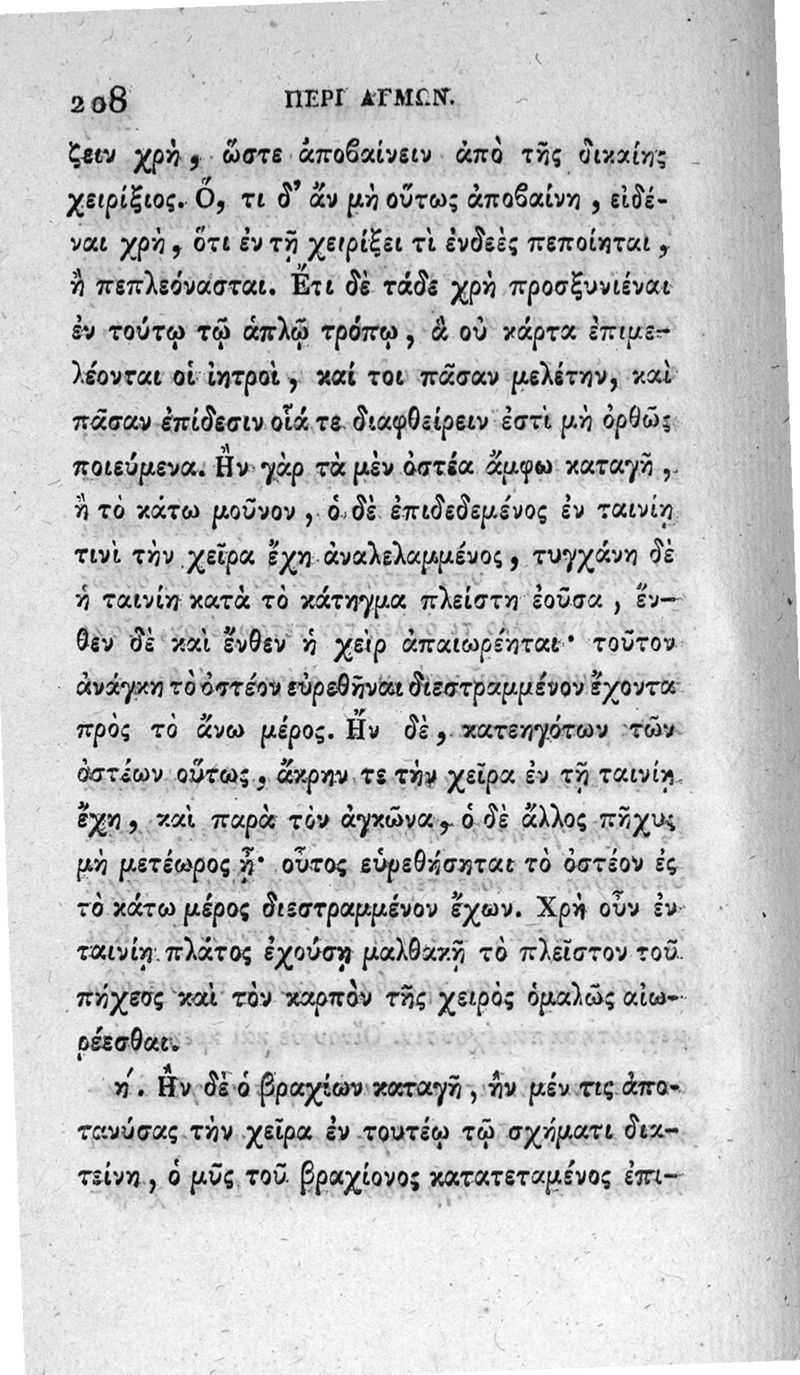 208 ΠΕΡΙ ΑΓΜΩΝ.
ζειν χρὴ, ὥστε ἀποβαίνειν ἀπὸ τῆς δικαίης
χειρίξιος. Ὅ, τι δ' ἂν μὴ οὕτως ἀποβαίνη, εἰδέ-
ναι χρὴ, ὅτι ἐν τῇ χειρίξει τὶ ἐνδεὲς πεποίηται,
ἢ πεπλεόνασται. Ἔτι δὲ τάδε χρὴ προσξυνιέναι
ἐν τούτῳ τῷ ἁπλῷ τρόπῳ, ἃ οὐ κάρτα ἐπιμε-
λέονται οἱ ἰητροὶ, καί τοι πᾶσαν μελέτην, καὶ
πᾶσαν ἐπίδεσιν οἷά τε διαφθείρειν ἐστὶ μὴ ὀρθῶς
ποιεύμενα. Ἢν γὰρ τὰ μὲν ὀστέα ἄμφω καταγῇ,
ἢ τὸ κάτω μοῦνον, ὁ δὲ ἐπιδεδεμένος ἐν ταινίῃ
τινὶ τὴν χεῖρα ἔχῃ ἀναλελαμμένος, τυγχάνη δὲ
ἡ ταινίη κατὰ τὸ κάτηγμα πλείστη ἐοῦσα, ἔν-
θεν δὲ καὶ ἔνθεν ἡ χεὶρ ἀπαιωρέηται· τοῦτον
ἀνάγκη τὸ ὀστέον εὑρεθῆναι διεστραμμένον ἔχοντα
πρὸς τὸ ἄνω μέρος. Ἢν δὲ, κατεηγότων τῶν
ὀστέων οὕτως, ἄκρην τε τὴν χεῖρα ἐν τῇ ταινίῃ
ἔχῃ, καὶ παρὰ τὸν ἀγκῶνα, ὁ δὲ ἄλλος πῆχυς
μὴ μετέωρος ᾖ· οὗτος εὑρεθήσηται τὸ ὀστέον ἐς
τὸ κάτω μέρος διεστραμμένον ἔχων. Χρὴ οὖν ἐν
ταινίῃ πλάτος ἐχούσῃ μαλθακῇ τὸ πλεῖστον τοῦ
πήχεος καὶ τὸν καρπὸν τῆς χειρὸς ὁμαλῶς αἰω-
ρέεσθαι.
η΄. Ἢν δὲ ὁ βραχίων καταγῇ, ἢν μέν τις ἀπο-
τανύσας τὴν χεῖρα ἐν τουτέῳ τῷ σχήματι δια-
τείνῃ, ὁ μῦς τοῦ βραχίονος κατατεταμένος ἐπι-